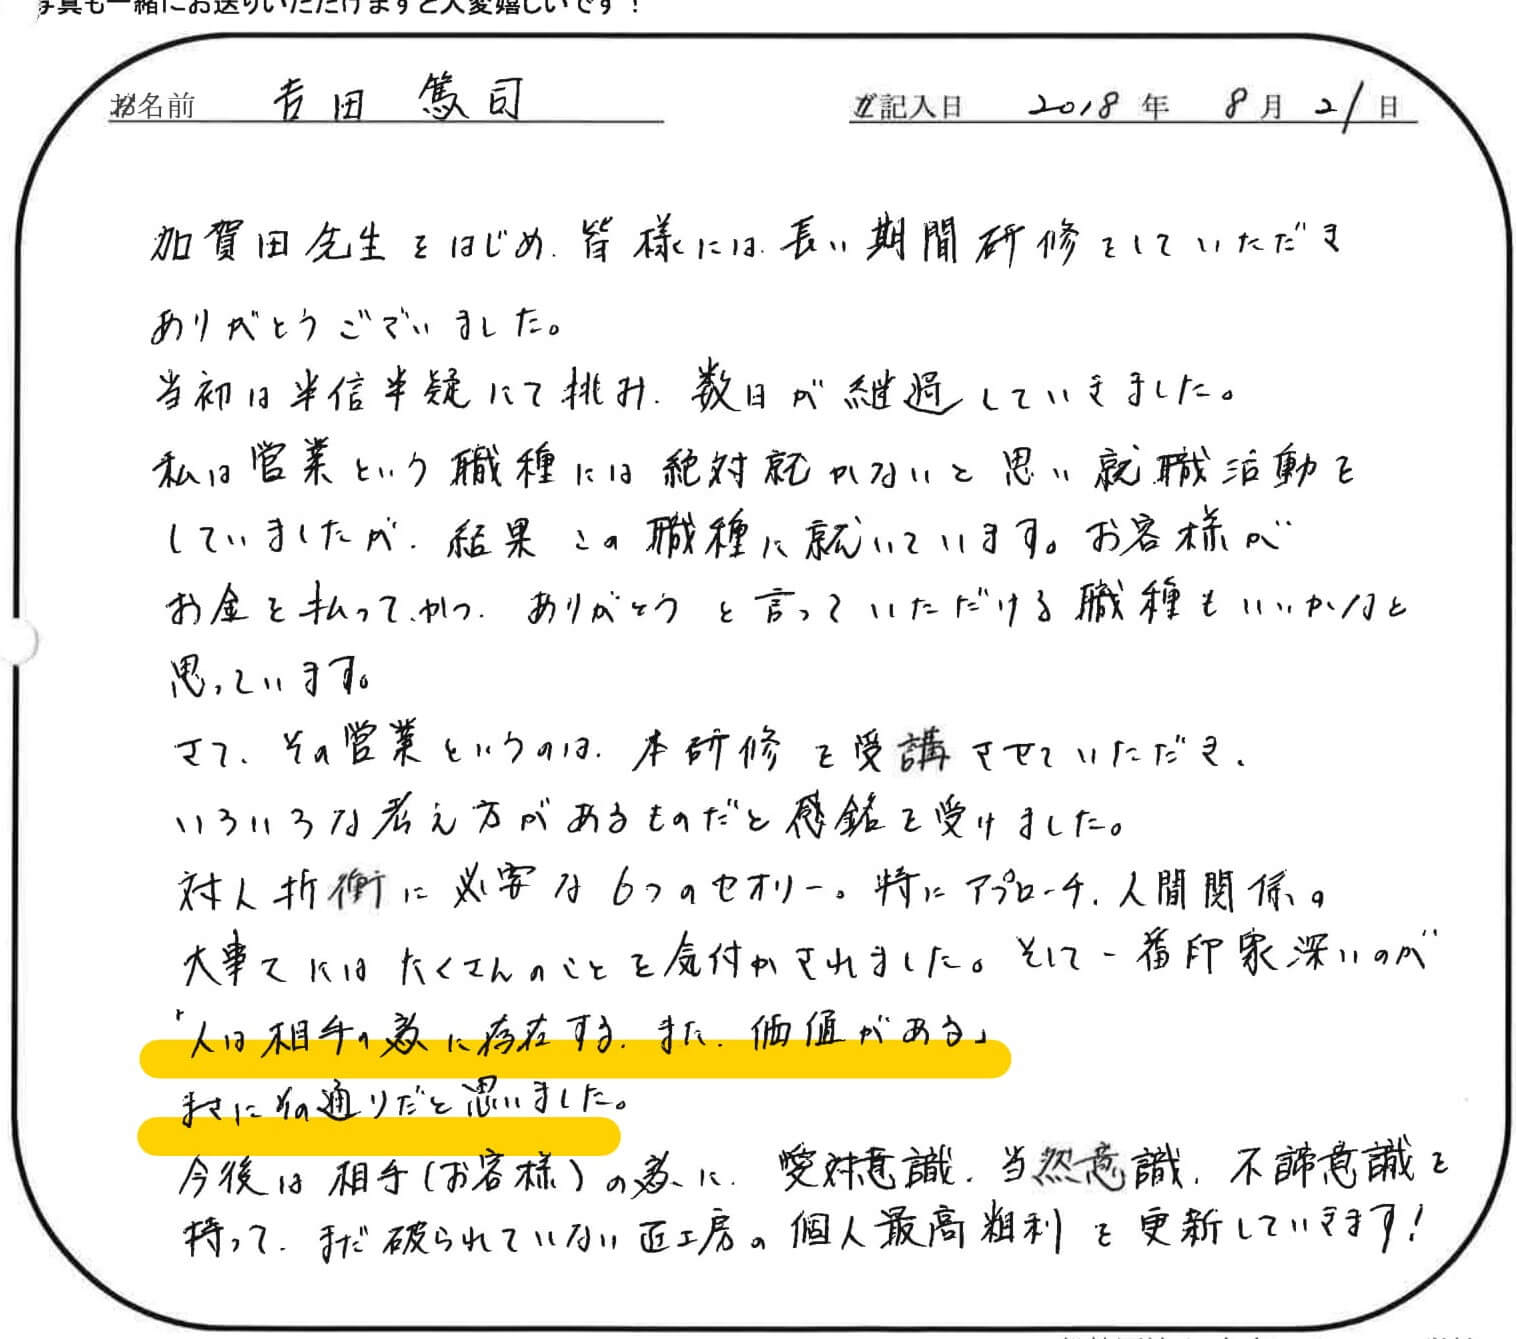 写真も一緒にお送りいただけますと大変嬉しいです！
お名前 吉田 篤司
ご記入日 2018年 8月21日
加賀田先生をはじめ、皆様には、長い期間研修をしていただき
ありがとうございました。
当初は半信半疑にて挑み、数日が経過していきました。
私は営業という職種には絶対就かないと思い就職活動を
していましたが、結果この職種に就いています。お客様が
お金を払って、かつ、ありがとうと言っていただける職種もいいかなと
思っています。
さて、その営業というのは、本研修を受講させていただき、
いろいろな考え方があるものだと感銘を受けました。
対人折衝に必要な6つのセオリー。特にアプローチ、人間関係の
大事さにはたくさんのことを気付かされました。そして一番印象深いのが
「人は相手の為に存在する、また、価値がある」
まさにその通りだと思いました。
今後は相手(お客様)の為に、愛対意識、当然意識、不諦意識を
持って、まだ破られていない匠工房の個人最高粗利を更新していきます！